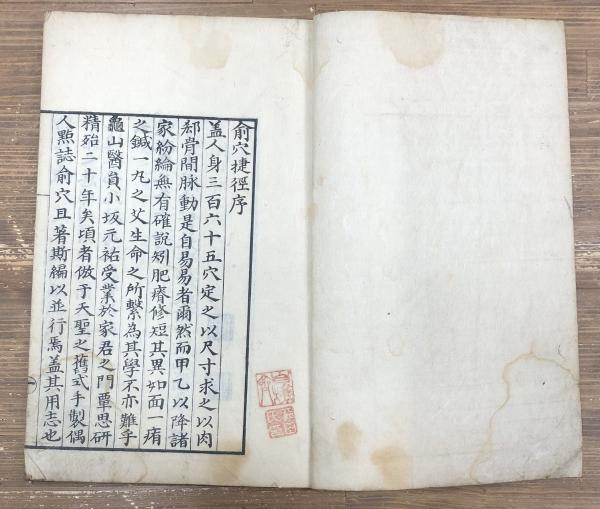 俞穴捷徑序
盖人身三百六十五穴定之以尺寸求之以肉
郄骨間脉動是自易易者爾然而甲乙以降諸
家紛綸無有確說矧肥瘠修短其異如面一痏
之鍼一九之艾生命之所繫為其學不亦難乎
龜山醫員小坂元祐受業於家君之門覃思研
精殆二十年矣頃者倣于天聖之舊式手製偶
人點誌俞穴且著斯編以並行焉盖其用志也